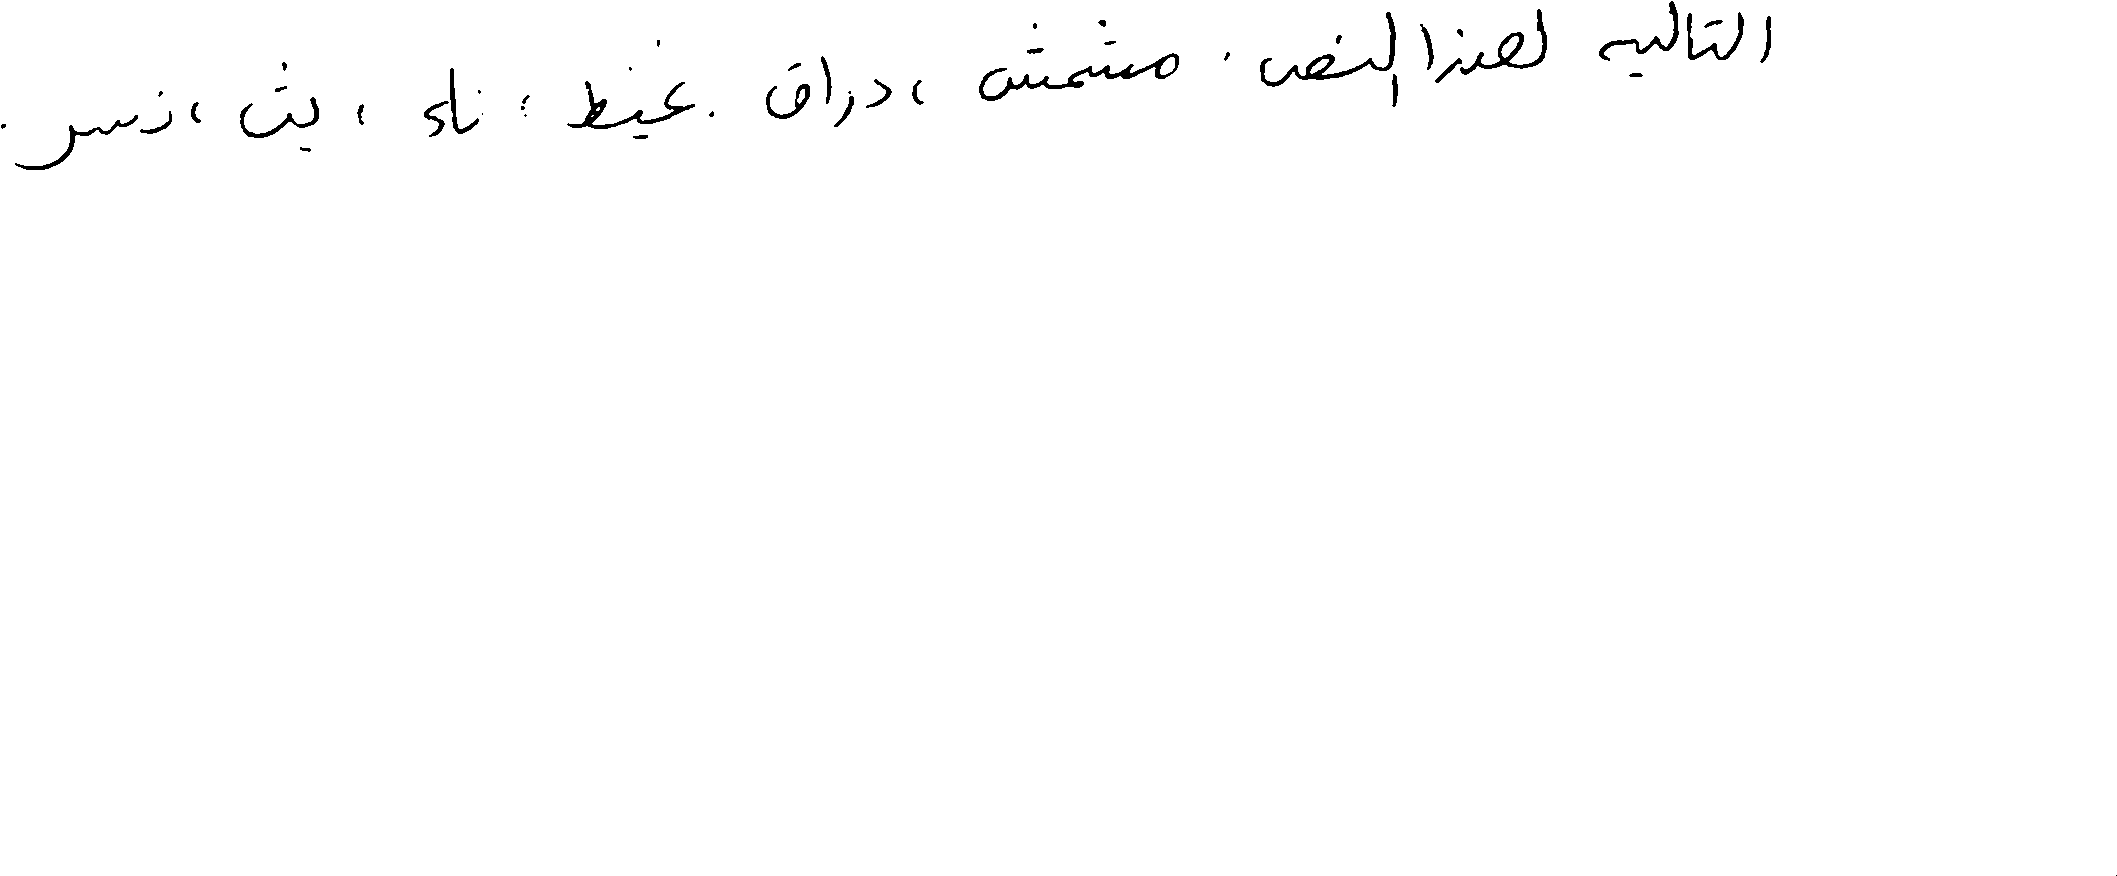 التاليه لهذا النص. مشمش، دراق. غيظ، ناء، يث، نسر.